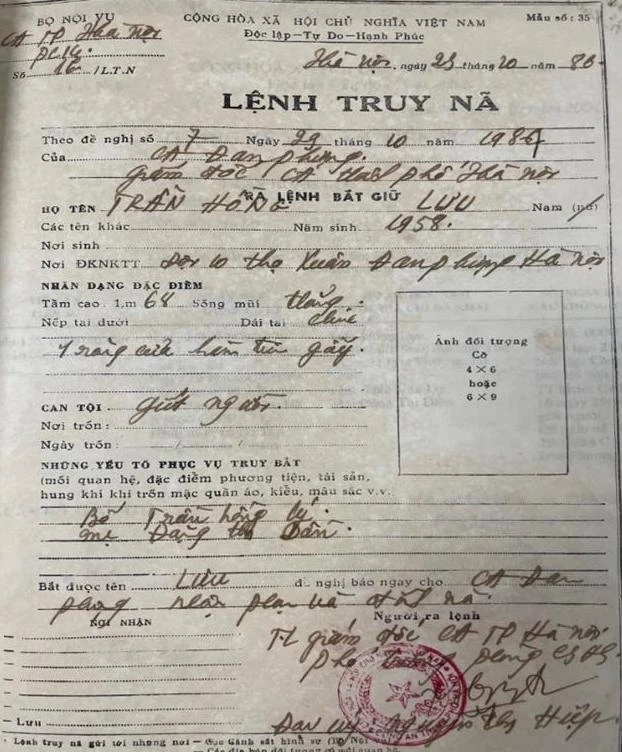 BỘ NỘI VỤ
CỘNG HÒA XÃ HỘI CHỦ NGHĨA VIỆT NAM
Mẫu số: 35
CA TP Hà Nội
Độc lập—Tự Do—Hạnh Phúc
PC14
Số 16 /L.T.N
Hà Nội, ngày 29 tháng 10 năm 86
LỆNH TRUY NÃ
Theo đề nghị số 7 Ngày 29 tháng 10 năm 1986
Của CA Đan phượng
giám đốc CA thành phố Hà Nội
RA LỆNH BẮT GIỮ
HỌ TÊN TRẦN HỒNG LƯU Nam (nữ)
Các tên khác Năm sinh 1958.
Nơi sinh
Nơi ĐKNKTT Đội 10 thọ Xuân Đan phượng Hà Nội
NHÂN DẠNG ĐẶC ĐIỂM
Tầm cao 1,m 68 Sống mũi thẳng.
Nếp tai dưới Dái tai chúc
1 răng cửa hàm trên gẫy.
Ảnh đối tượng
Cỡ
4 × 6
hoặc
6 × 9
CAN TỘI giết người.
Nơi trốn:
Ngày trốn: / /
NHỮNG YẾU TỐ PHỤC VỤ TRUY BẮT
(mối quan hệ, đặc điểm phương tiện, tài sản,
hung khí khi trốn mặc quần áo, kiểu, màu sắc v.v.
Bố Trần hồng lý.
mẹ Đặng thị Dần.
Bắt được tên LƯU đề nghị báo ngay cho CA Đan
phượng
NƠI NHẬN
Người ra lệnh
TL giám đốc CA TP Hà Nội
phòng CSHS
— Lưu
Đại úy Nguyễn Hiệp
Lệnh truy nã gửi tới những nơi — Cục Cảnh sát hình sự (Bộ Nội